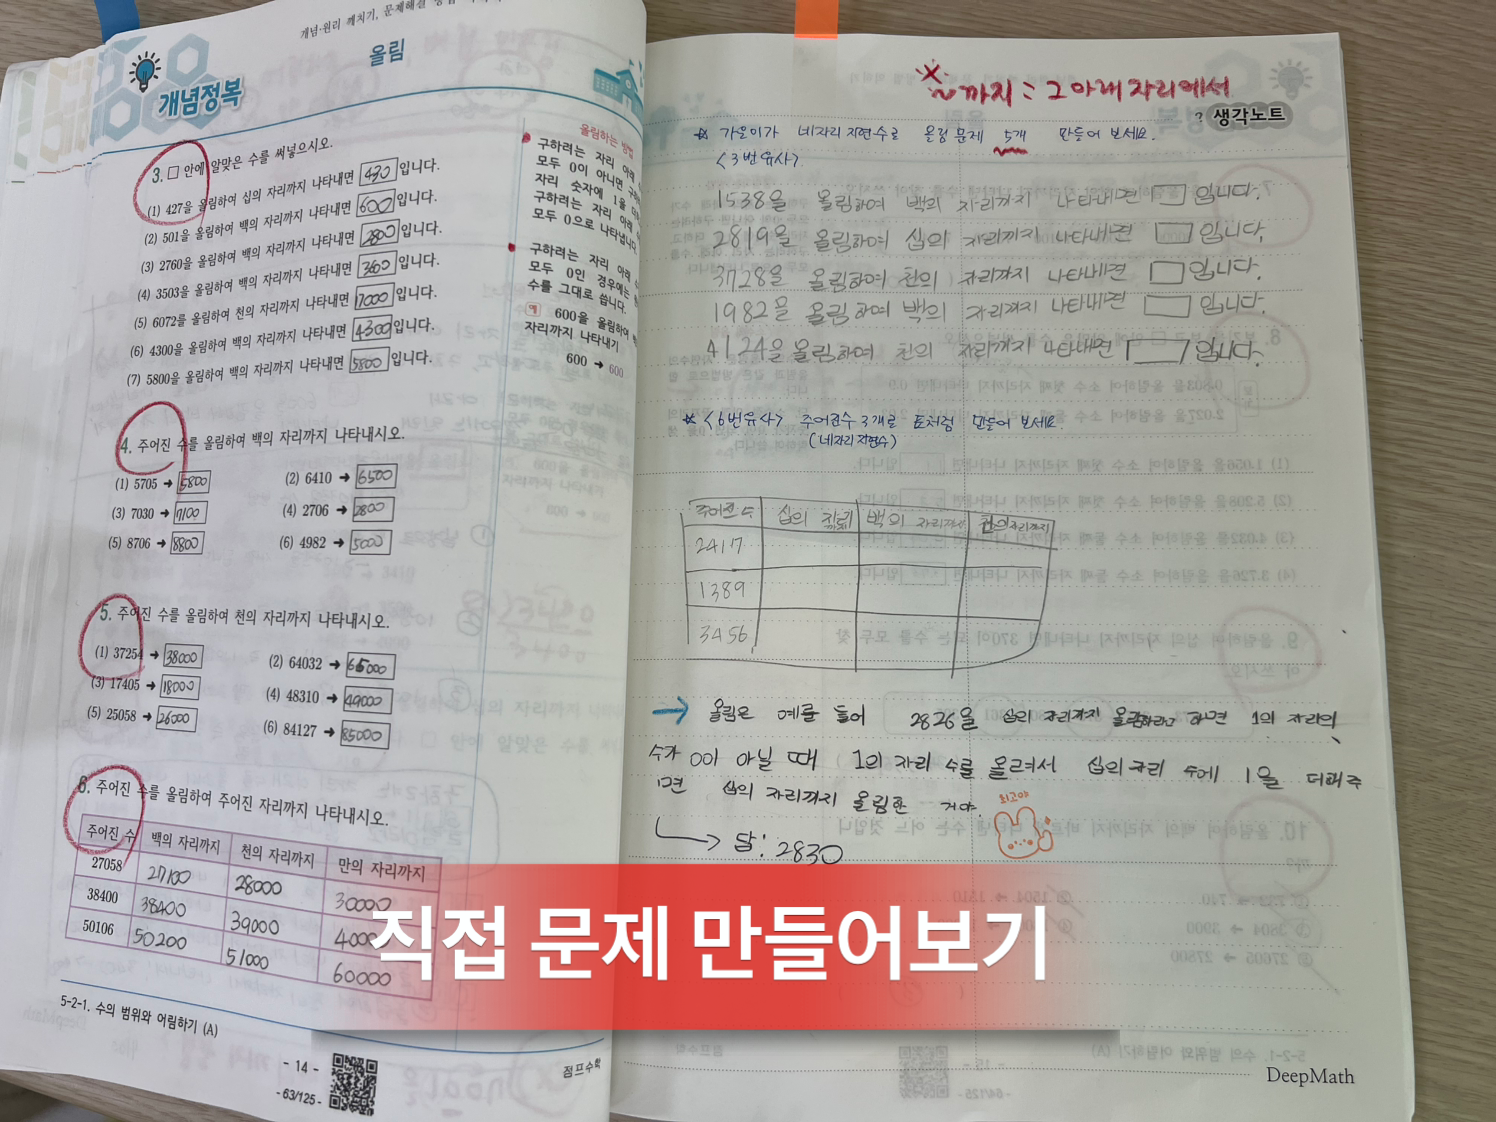 개념·원리 깨치기, 문제해결
올림
개념정복
3. □ 안에 알맞은 수를 써넣으시오.
(1) 427을 올림하여 십의 자리까지 나타내면 430 입니다.
(2) 501을 올림하여 백의 자리까지 나타내면 600 입니다.
(3) 2760을 올림하여 백의 자리까지 나타내면 2800 입니다.
(4) 3503을 올림하여 백의 자리까지 나타내면 3600 입니다.
(5) 6072를 올림하여 천의 자리까지 나타내면 7000 입니다.
(6) 4300을 올림하여 백의 자리까지 나타내면 4300 입니다.
(7) 5800을 올림하여 백의 자리까지 나타내면 5800 입니다.
올림하는 방법
구하려는 자리 아래
모두 0이 아니면 구하
자리 숫자에 1을 더
구하려는 자리 아래
모두 0으로 나타냅니다.
구하려는 자리 아래
모두 0인 경우에는
수를 그대로 씁니다.
예 600을 올림하여 백
자리까지 나타내기
600 → 600
4. 주어진 수를 올림하여 백의 자리까지 나타내시오.
(1) 5705 → 5800 (2) 6410 → 6500
(3) 7030 → 7100 (4) 2706 → 2800
(5) 8706 → 8800 (6) 4982 → 5000
5. 주어진 수를 올림하여 천의 자리까지 나타내시오.
(1) 37254 → 38000 (2) 64032 → 65000
(3) 17405 → 18000 (4) 48310 → 49000
(5) 25058 → 26000 (6) 84127 → 85000
6. 주어진 수를 올림하여 주어진 자리까지 나타내시오.
주어진 수 백의 자리까지 천의 자리까지 만의 자리까지
27058 27100 28000 30000
38400 38400 39000 40000
50106 50200 51000 60000
5-2-1. 수의 범위와 어림하기 (A)
- 14 -
- 63/125 -
점프수학
~까지 : 그 아래 자리에서
? 생각노트
☆ 가온이가 네자리 자연수로 올림 문제 5개 만들어 보세요.
<3번유사>
1538을 올림하여 백의 자리까지 나타내면 □ 입니다.
2819을 올림하여 십의 자리까지 나타내면 □ 입니다.
3728을 올림하여 천의 자리까지 나타내면 □ 입니다.
1982을 올림하여 백의 자리까지 나타내면 □ 입니다.
4124을 올림하여 천의 자리까지 나타내면 □ 입니다.
☆ <6번유사> 주어진수 3개로 표처럼 만들어 보세요
(네자리 자연수)
주어진 수 십의 자리까지 백의 자리까지 천의 자리까지
2417
1389
3456
→ 올림은 예를 들어 2826을 십의 자리까지 올림하라고 하면 1의 자리의
수가 0이 아닐 때 1의 자리 수를 올려서 십의 자리 수에 1을 더해주
면 십의 자리까지 올림한 거야.
최고야
→ 답 : 2830
직접 문제 만들어보기
DeepMath